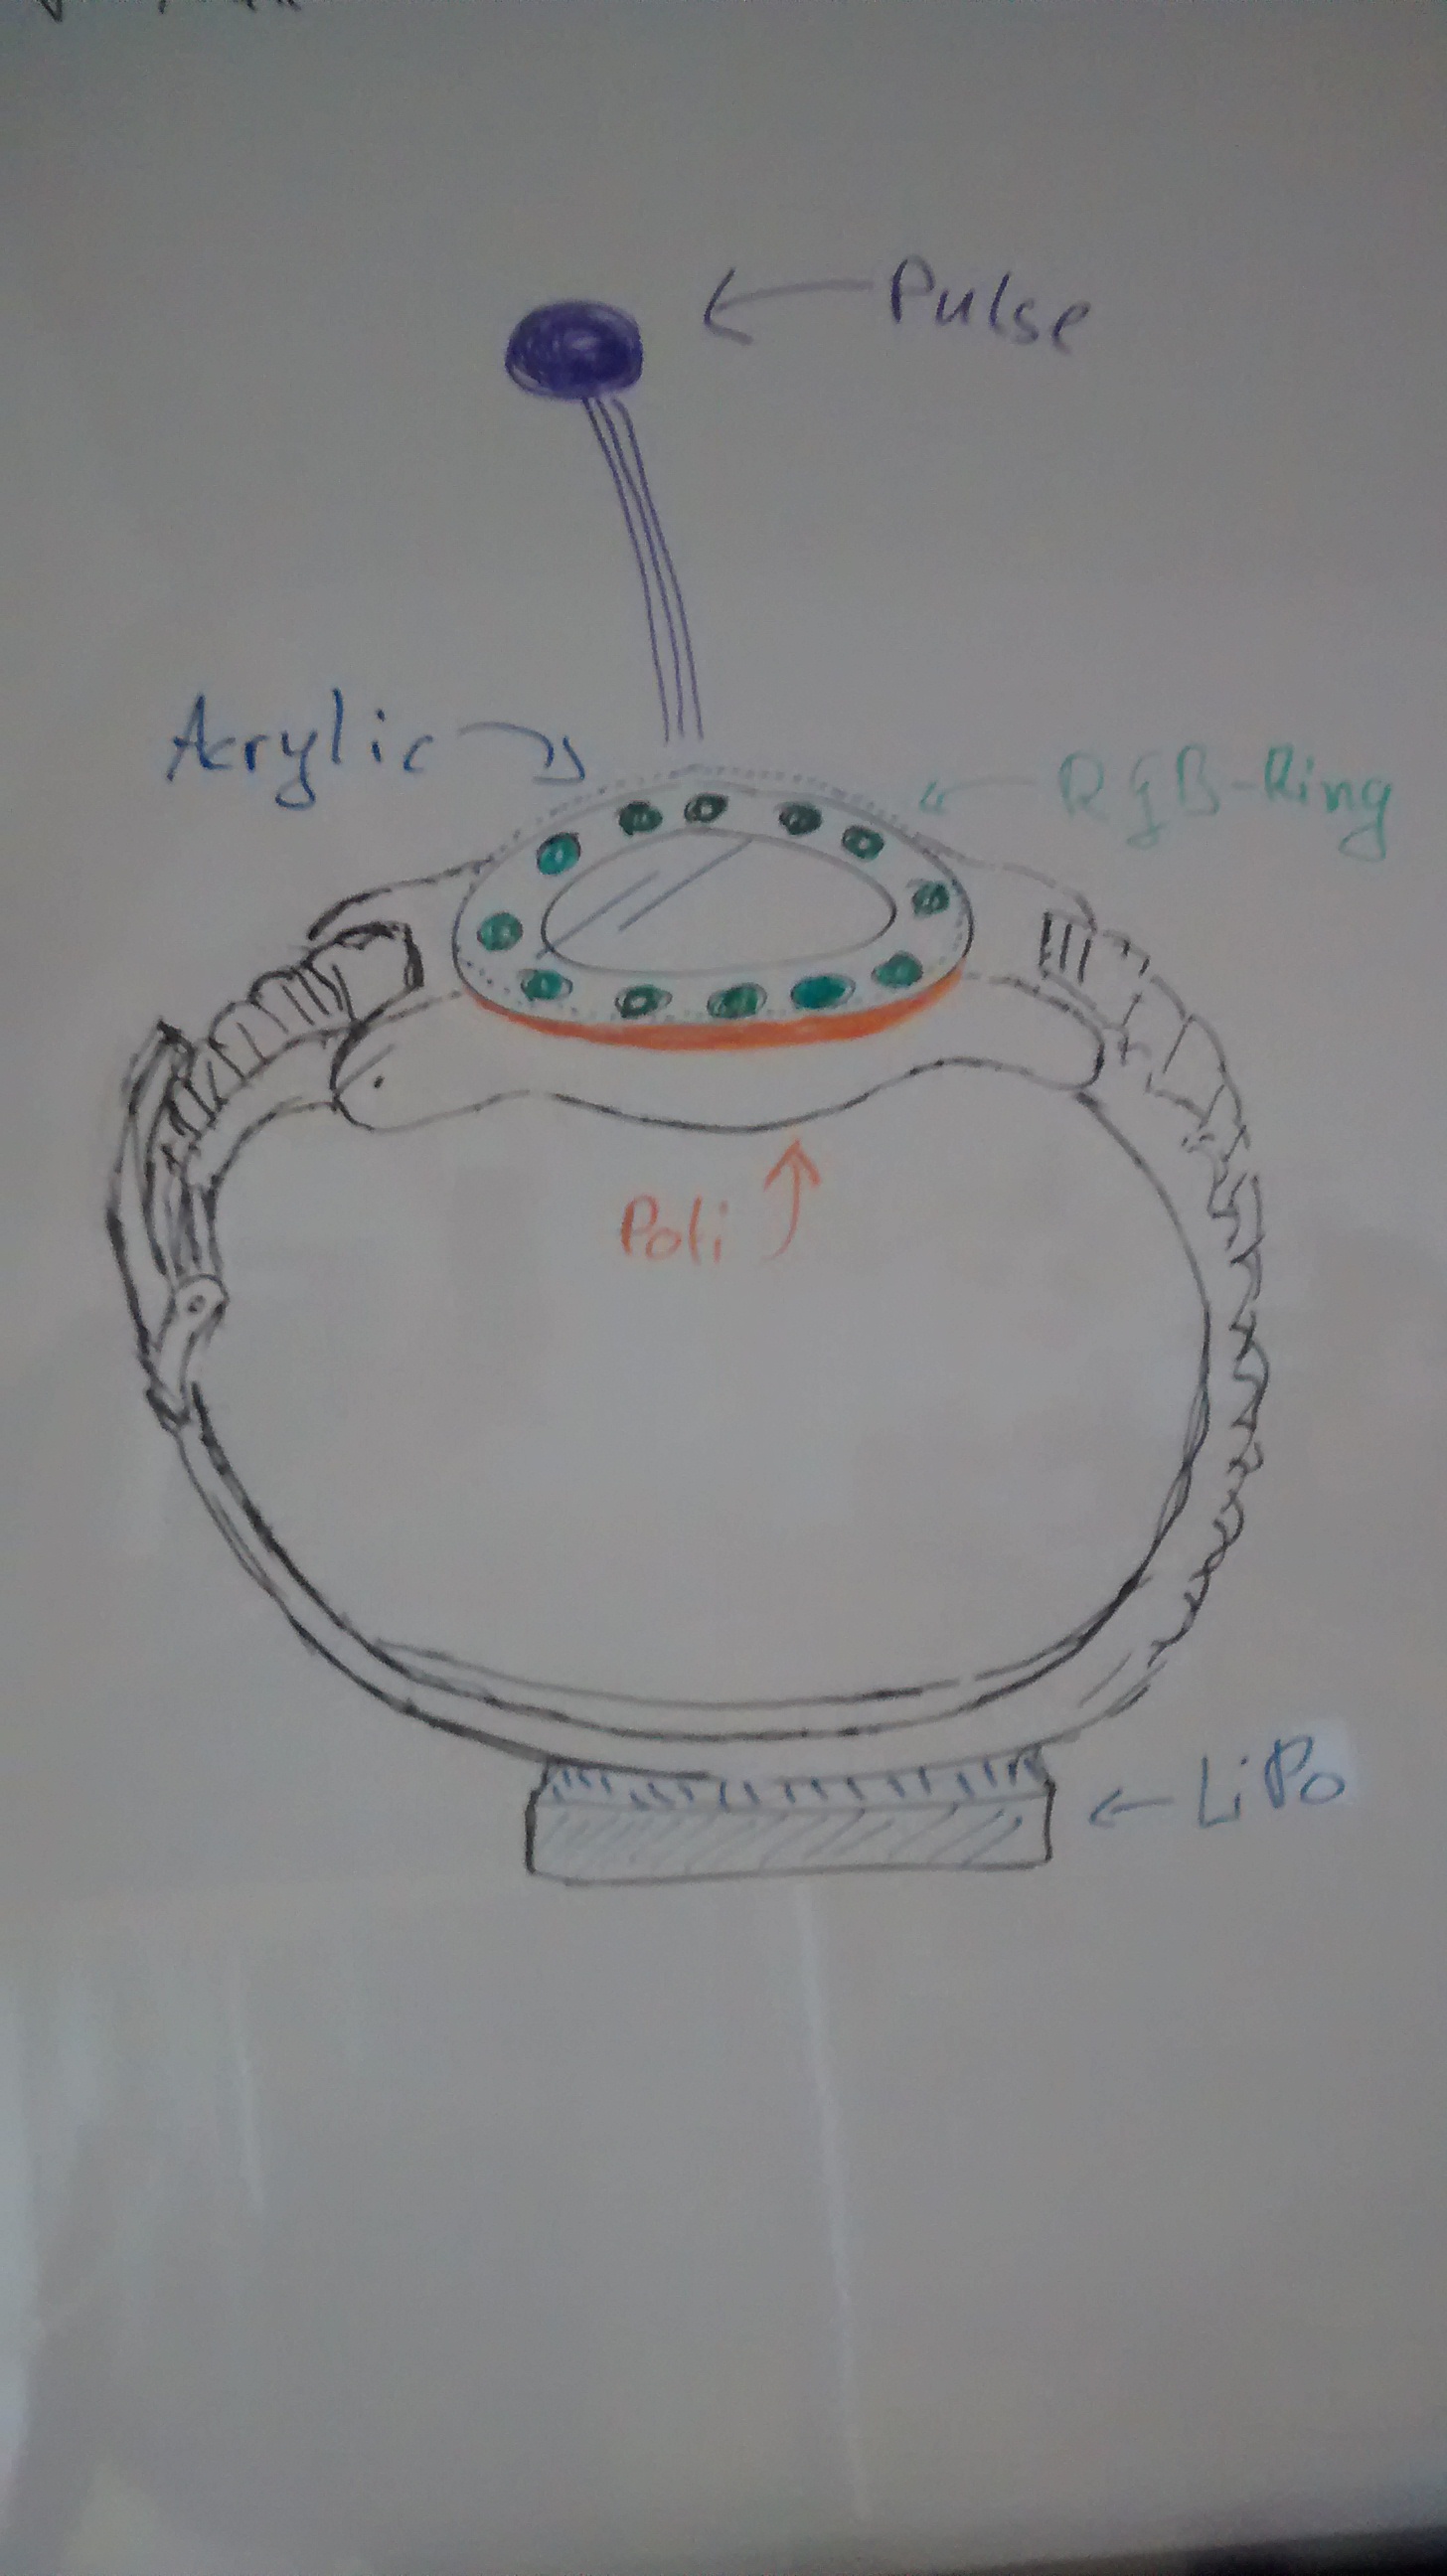 Pulse
Acrylic
RGB-Ring
Poli
LiPo